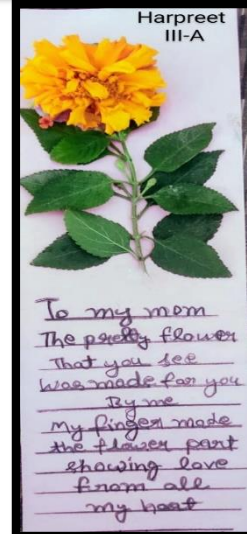 Harpreet
III-A
To my mom
The pretty flower
That you see
Was made for you
By me
My finger made
the flower part
showing love
from all
my heart